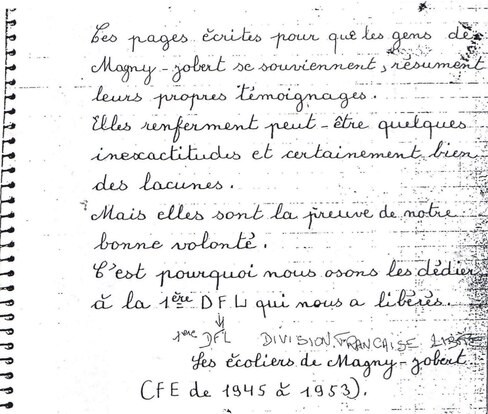 Ces pages écrites pour que les gens de
Magny-Jobert se souviennent, résument
leurs propres témoignages.
Elles renferment peut-être quelques
inexactitudes et certainement bien
des lacunes.
Mais elles sont la preuve de notre
bonne volonté.
C'est pourquoi nous osons les dédier
à la 1ère DFL qui nous a libérés.
1ère DFL DIVISION FRANÇAISE LIBRE
Les écoliers de Magny-Jobert
(CFE de 1945 à 1953).